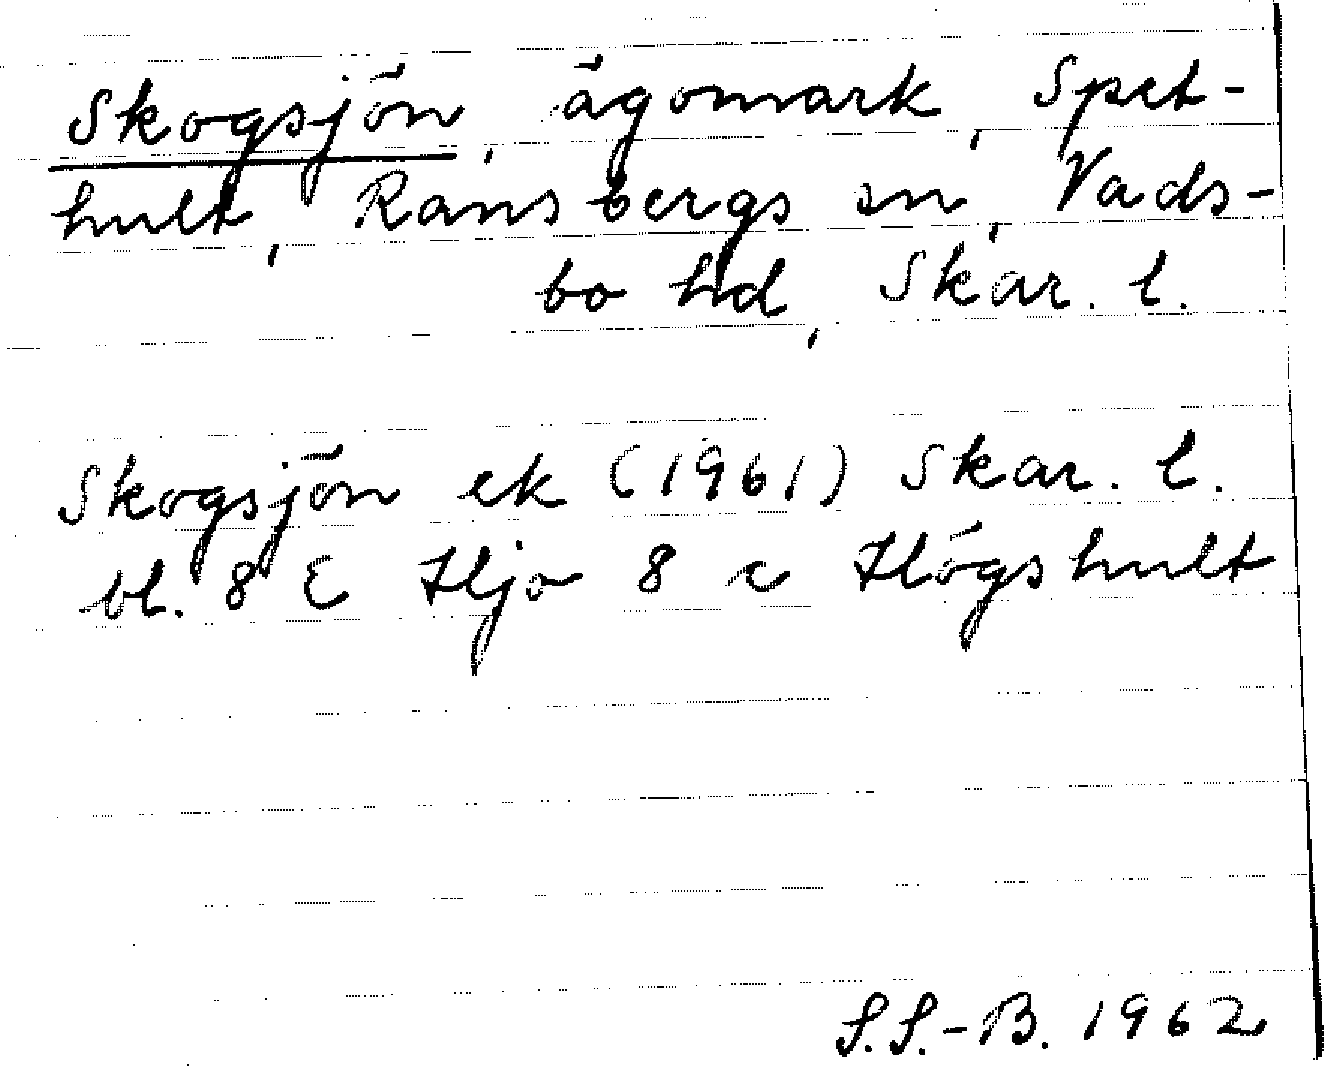 Skogsjön, ägomark, Spet-
hult, Ransbergs sn, Vads-
bo hd, Skar. l.
Skogsjön ek (1961) Skar. l.
bl. 8 E Hjo 8 c Högshult
S.S.-B. 1962